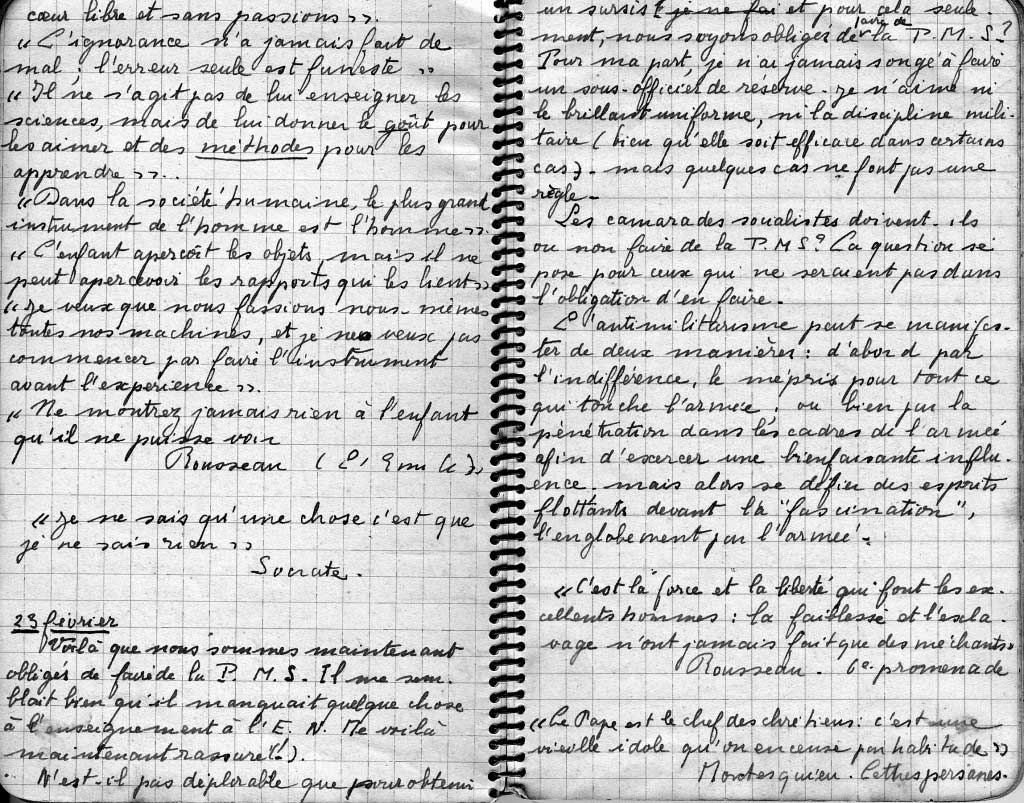 cœur libre et sans passions ».
« L'ignorance n'a jamais fait de
mal : l'erreur seule est funeste »
« Il ne s'agit pas de lui enseigner les
sciences, mais de lui donner le goût pour
les aimer et des méthodes pour les
apprendre »..
« Dans la société humaine, le plus grand
instrument de l'homme est l'homme ».
« L'enfant aperçoit les objets, mais il ne
peut apercevoir les rapports qui les lient »
« Je veux que nous fassions nous-mêmes
toutes nos machines, et je ne veux pas
commencer par faire l'instrument
avant l'expérience ».
« Ne montrez jamais rien à l'enfant
qu'il ne puisse voir
Rousseau ( L'Emile ) »
« Je ne sais qu'une chose c'est que
je ne sais rien »
Socrate.
23 février
Voilà que nous sommes maintenant
obligés de faire de la P. M. S. Il me sem-
blait bien qu'il manquait quelque chose
à l'enseignement à l'E. N. Me voilà
maintenant rassuré (!).
N'est-il pas déplorable que pour obtenir
un sursis [ je ne fai et pour cela seule-
ment, nous soyons obligés de faire de la P. M. S?
Pour ma part, je n'ai jamais songé à faire
un sous-officier de réserve. Je n'aime ni
le brillant uniforme, ni la discipline mili-
taire (bien qu'elle soit efficace dans certains
cas). mais quelques cas ne font pas une
règle.
Les camarades socialistes doivent-ils
ou non faire de la P. M S? La question se
pose pour ceux qui ne seraient pas dans
l'obligation d'en faire.
L'antimilitarisme peut se manifes-
ter de deux manières : d'abord par
l'indifférence, le mépris pour tout ce
qui touche l'armée, ou bien par la
pénétration dans les cadres de l'armée
afin d'exercer une bienfaisante influ-
ence. mais alors se défier des esprits
flottants devant la "fascination",
l'englobement par l'armée.
« C'est la force et la liberté qui font les ex-
cellents hommes : la faiblesse et l'escla-
vage n'ont jamais fait que des méchants »
Rousseau. 6e promenade
« Le Pape est le chef des chrétiens : c'est une
vieille idole qu'on encense par habitude »
Montesquieu. Lettres persanes.